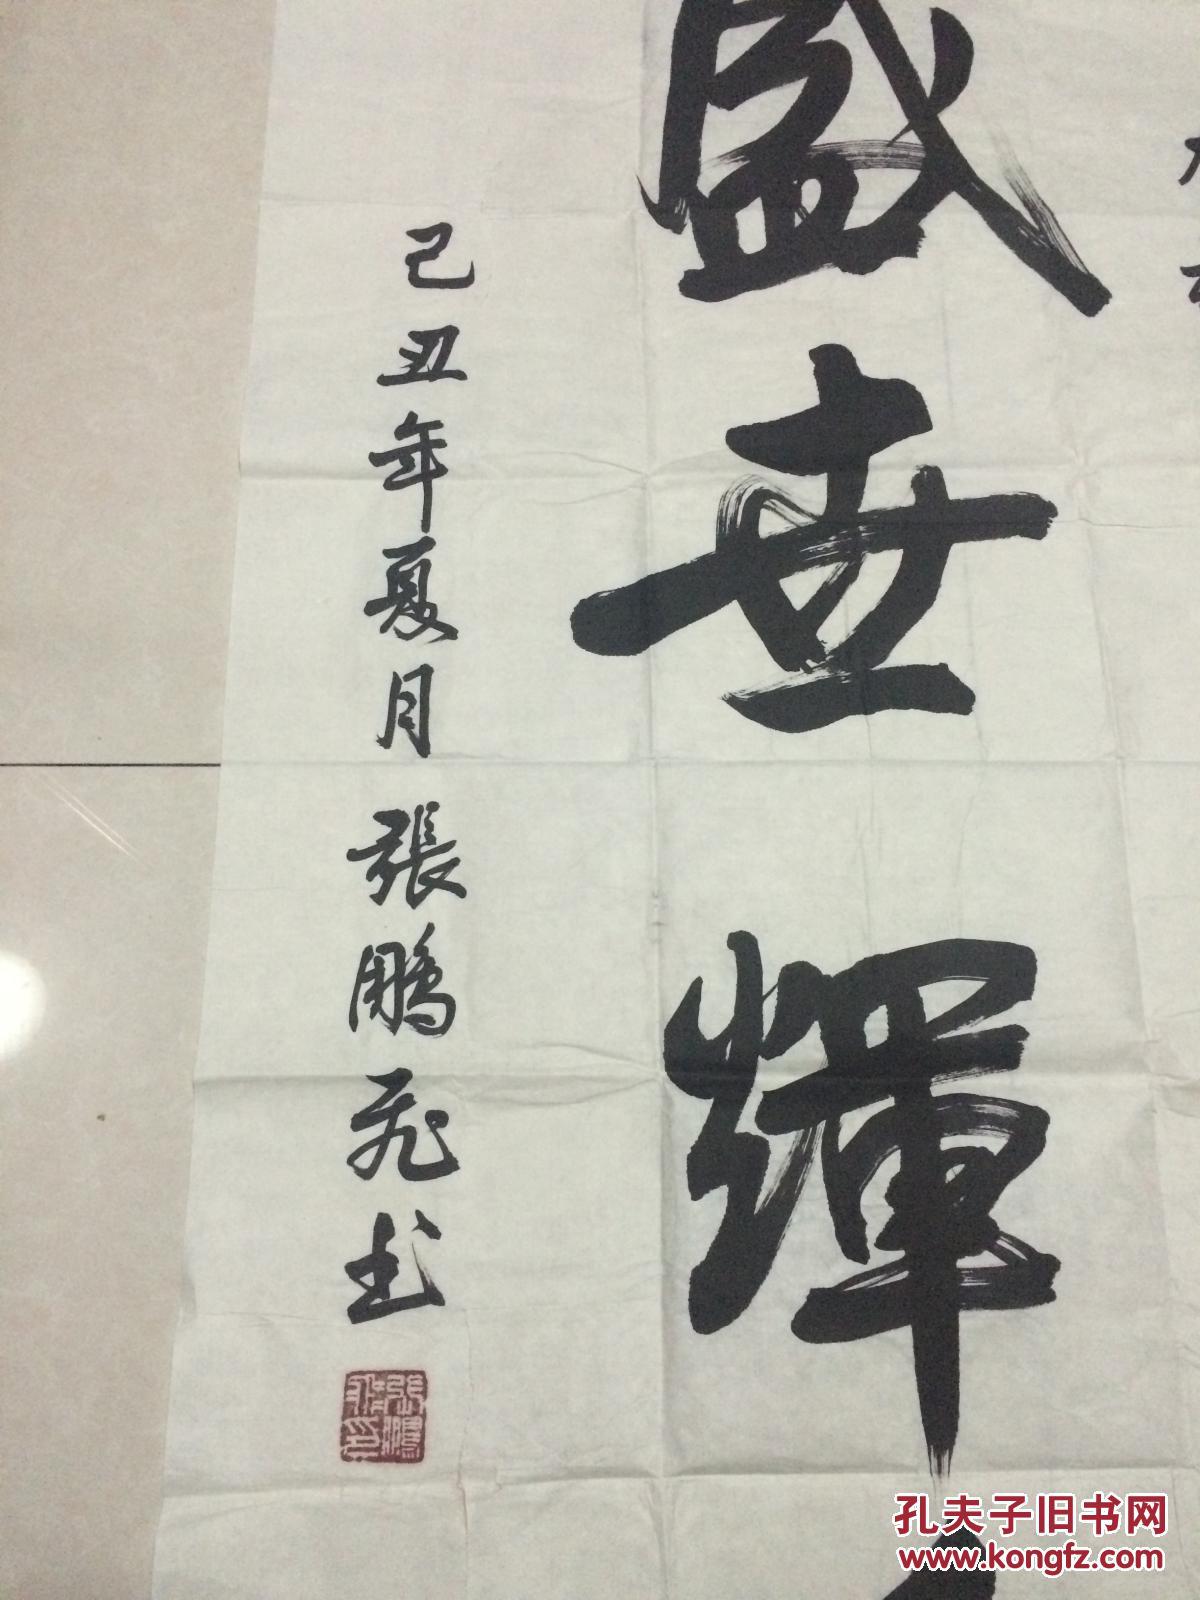 盛世輝
己丑年夏月張鵬飛书
張鵬飛印
孔夫子旧书网
www.kongfz.com